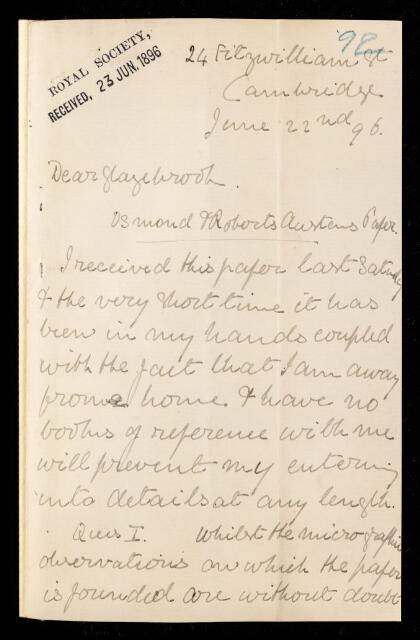 98
ROYAL SOCIETY,
RECEIVED, 23 JUN. 1896
24 Fitzwilliam St
Cambridge
June 22nd 96.
Dear Glazebrook.
Osmond & Roberts Austens Paper.
I received this paper last Saturday
& the very short time it has
been in my hands coupled
with the fact that I am away
from home & have no
books of reference with me
will prevent my entering
into details at any length.
Ques I. Whilst the micrographic
observations on which the paper
is founded are without doubt